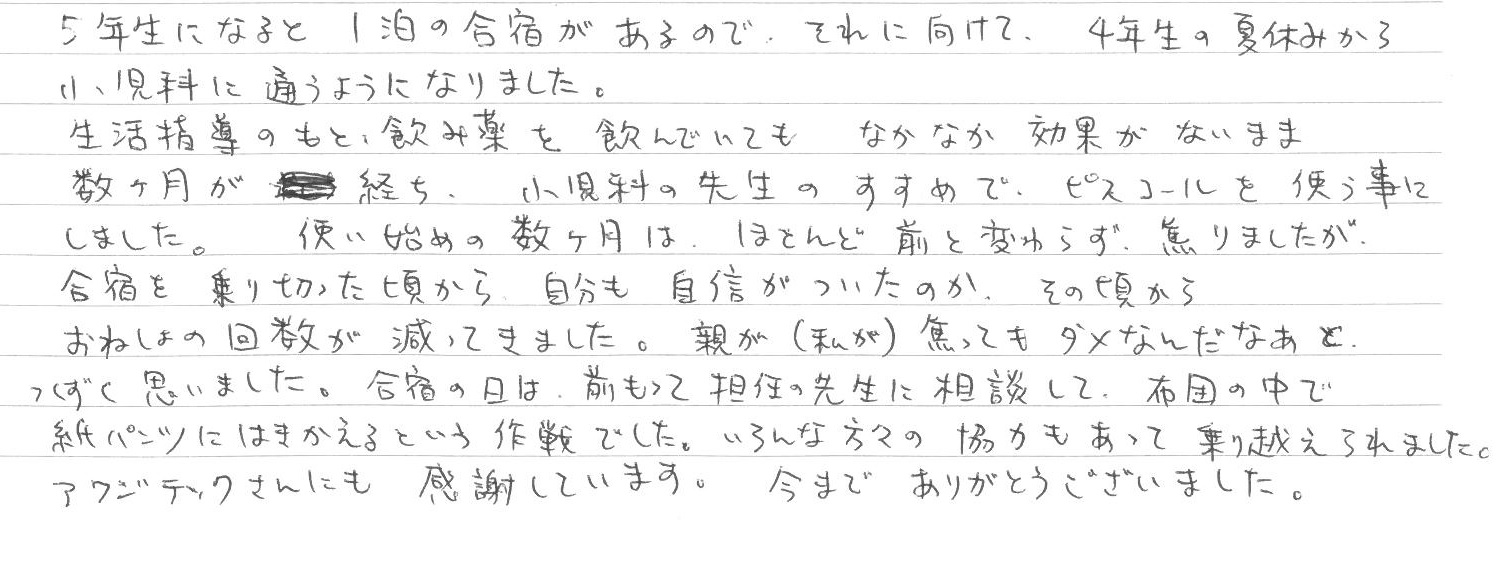 5年生になると 1泊の合宿があるので、それに向けて、 4年生の夏休みから
小児科に通うようになりました。
生活指導のもと、飲み薬を 飲んでいても なかなか 効果が ないまま
数ヶ月が 経ち、 小児科の先生の すすめで、ピスコールを使う事に
しました。 使い始めの数ヶ月は、ほとんど 前と変わらず、焦りましたが、
合宿を 乗り切った頃から、自分も 自信がついたのか、 その頃から
おねしょの回数が 減ってきました。 親が(私が)焦ってもダメなんだなあと、
つくずく思いました。合宿の日は、前もって担任の先生に相談して、布団の中で
紙パンツにはきかえるという作戦でした。いろんな方々の 協力もあって乗り越えられました。
アワジテックさんにも 感謝しています。 今まで ありがとうございました。